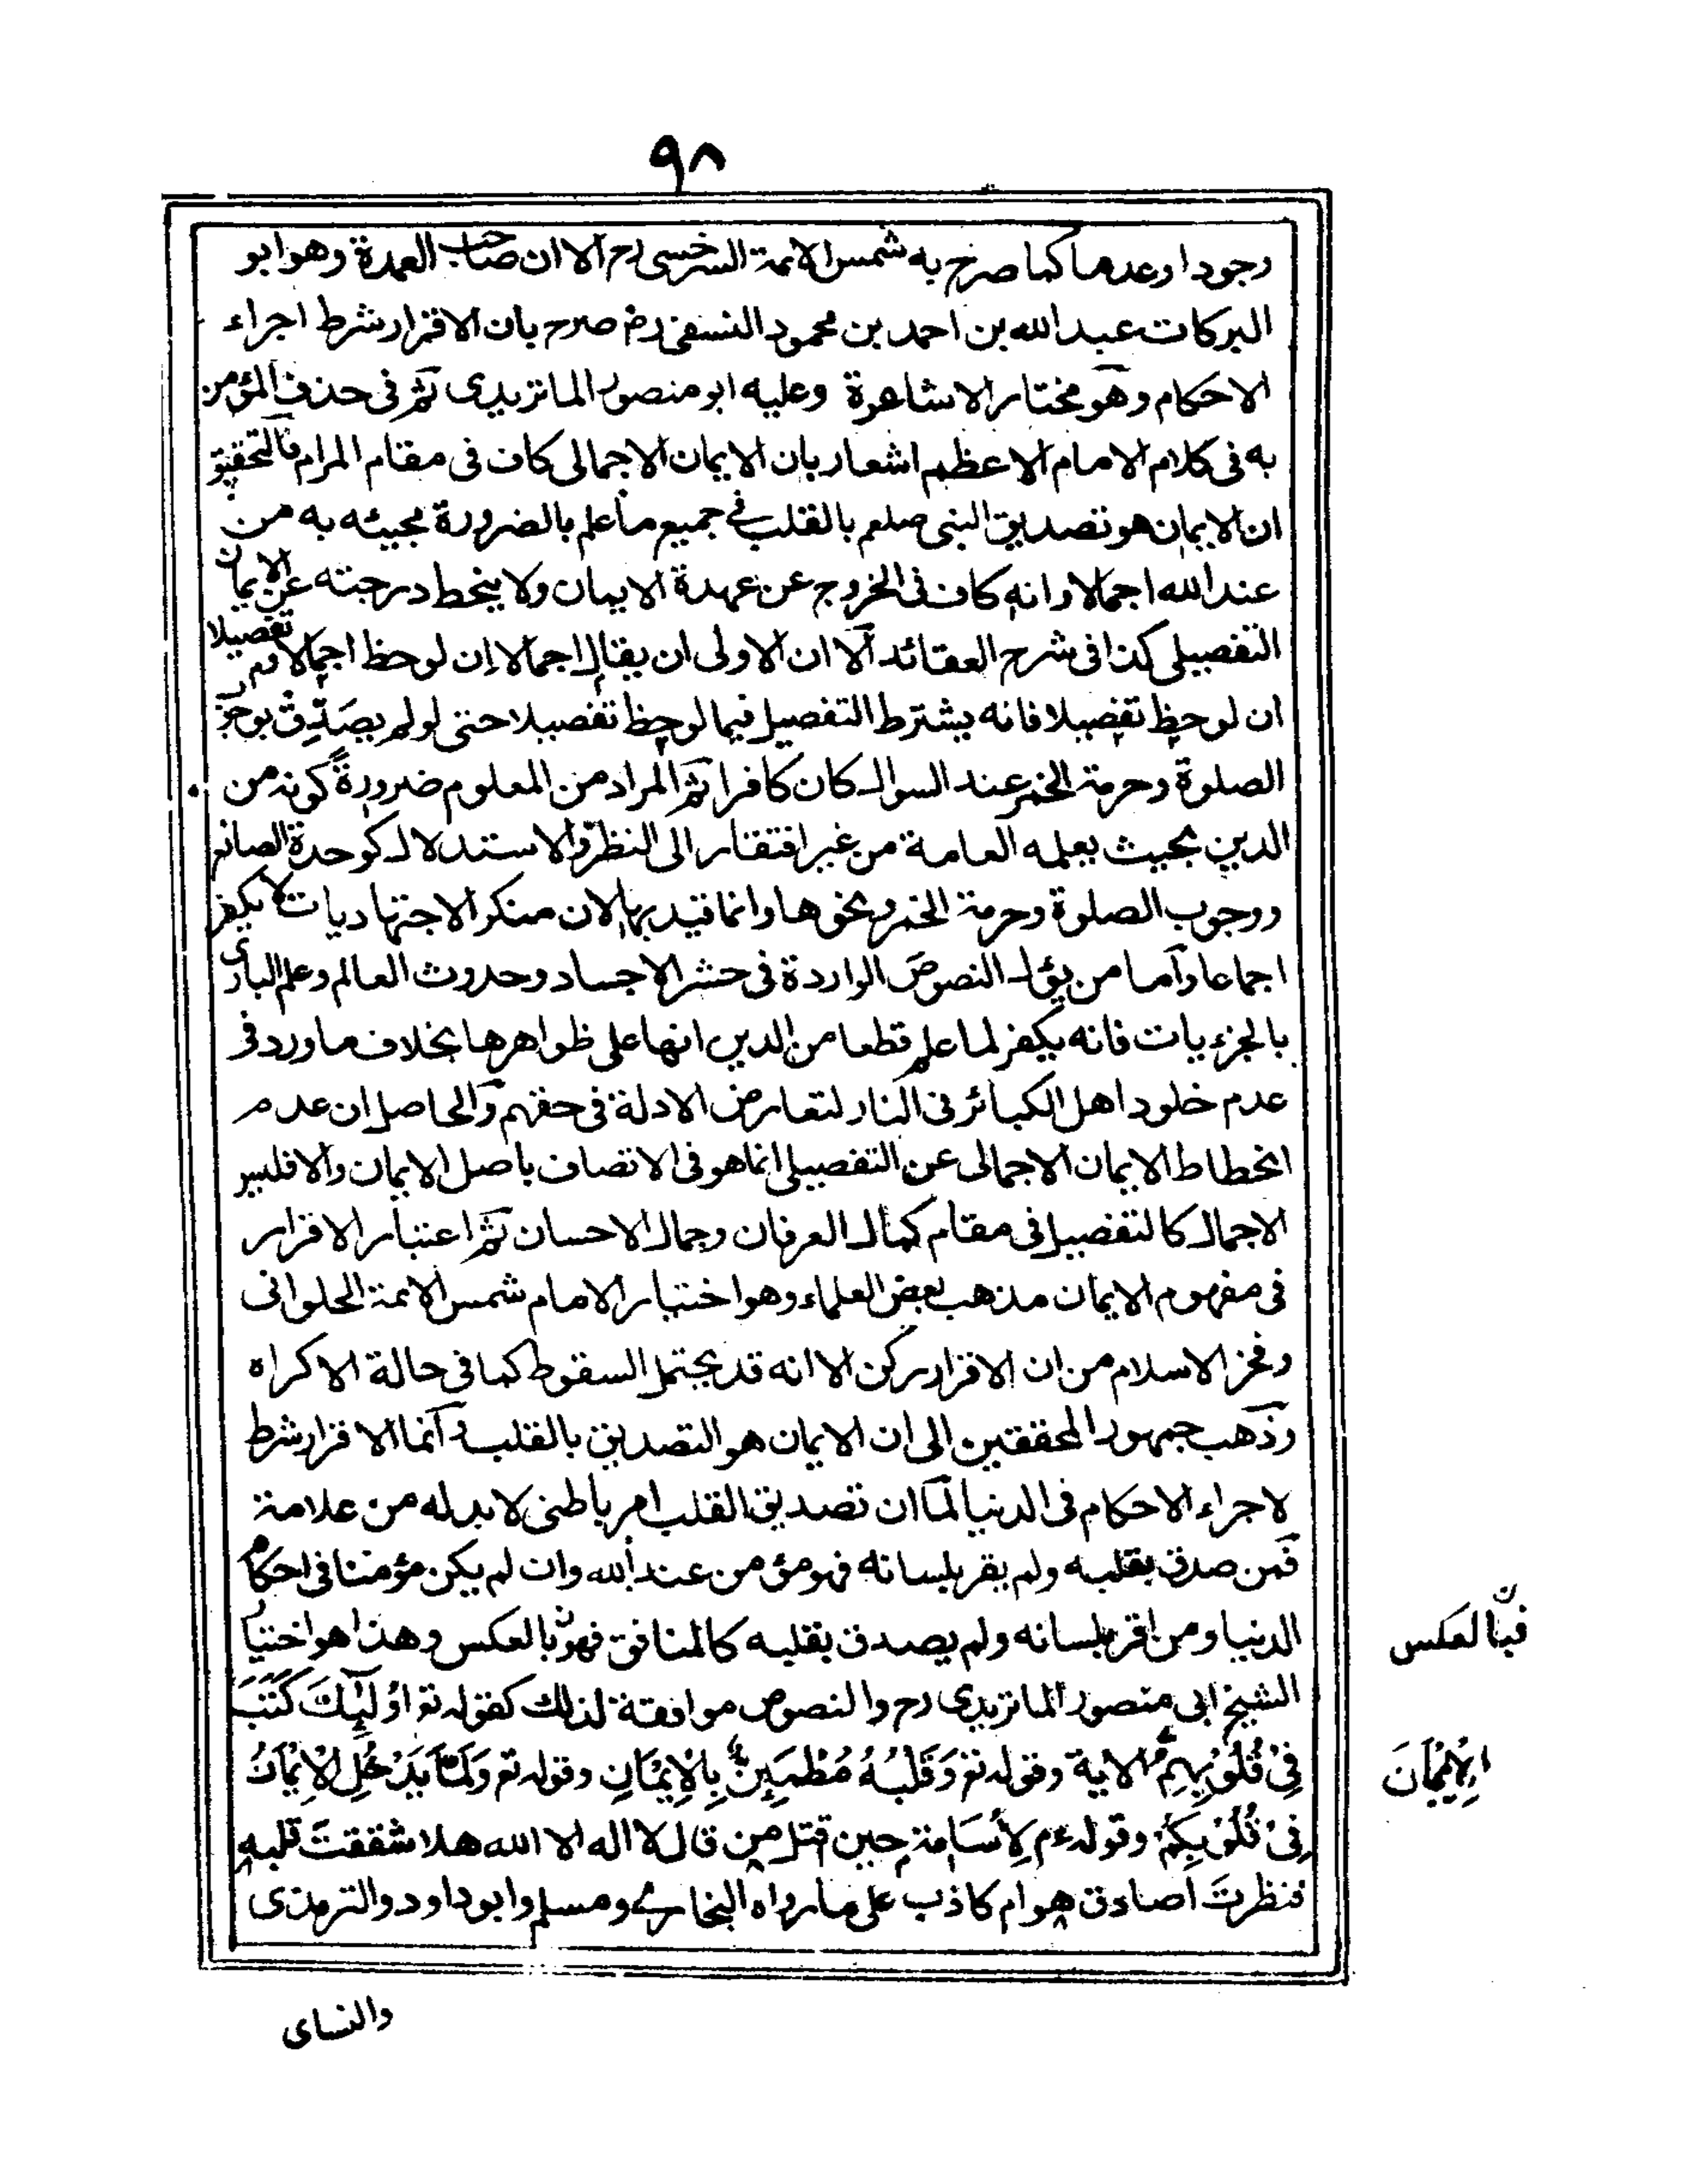 ٩٨
وجودا وعدما كما صرح به شمس الائمة السرخسى رح الا ان صاحب العمدة وهو ابو
البركات عبد الله بن احمد بن محمود النسفى رح صرح بان الاقرار شرط اجراء
الاحكام وهو مختار الاشاعرة وعليه ابو منصور الماتريدى ثم فى حذف المؤمن
به فى كلام الامام الاعظم اشعار بان الايمان الاجمالى كاف فى مقام المرام فالتحقيق
ان الايمان هو تصديق النبى صلعم بالقلب فى جميع ما علم بالضرورة مجيئه به من
عند الله اجمالا وانه كاف فى الخروج عن عهدة الايمان ولا ينحط درجته عن الايمان
التفصيلى كذا فى شرح العقائد الا ان الاولى ان يقال اجمالا ان لوحظ اجمالا وتفصيلا
ان لوحظ تفصيلا فانه يشترط التفصيل فيما لوحظ تفصيلا حتى لو لم يصدق بوجوب
الصلوة وحرمة الخمر عند السوال كان كافرا ثم المراد من المعلوم ضرورة كونه من
الدين بحيث يعلمه العامة من غير افتقار الى النظر والاستدلال كوحدة الصانع
ووجوب الصلوة وحرمة الخمر ونحوها وانما قيد بها لان منكر الاجتهاديات لا يكفر
اجماعا واما من يؤل النصوص الواردة فى حشر الاجساد وحدوث العالم وعلم البارى
بالجزءيات فانه يكفر لما علم قطعا من الدين انها على ظواهرها بخلاف ما ورد فى
عدم خلود اهل الكبائر فى النار لتعارض الادلة فى حقهم والحاصل ان عدم
انحطاط الايمان الاجمالى عن التفصيلى انما هو فى الاتصاف باصل الايمان والا فليس
الاجمال كالتفصيل فى مقام كمال العرفان وجمال الاحسان ثم اعتبار الاقرار
فى مفهوم الايمان مذهب بعض العلماء وهو اختيار الامام شمس الائمة الحلوانى
وفخر الاسلام من ان الاقرار ركن الا انه قد يحتمل السقوط كما فى حالة الاكراه
وذهب جمهور المحققين الى ان الايمان هو التصديق بالقلب وانما الاقرار شرط
لاجراء الاحكام فى الدنيا لما ان تصديق القلب امر باطنى لا بد له من علامة
فمن صدق بقلبه ولم يقر بلسانه فهو مؤمن عند الله وان لم يكن مؤمنا فى احكام
الدنيا ومن اقر بلسانه ولم يصدق بقلبه كالمنافق فهو بالعكس وهذا هو اختيار
فبالعكس
الشيخ ابى منصور الماتريدى رح والنصوص موافقة لذلك كقوله تع اُولٰٓئِكَ كَتَبَ
فِىْ قُلُوْبِهِمُ الاية وقوله تع وَقَلْبُهُ مُطْمَئِنٌّ بِالْاِيْمَانِ وقوله تع وَلَمَّا يَدْخُلِ الْاِيْمَانُ
الْاِيْمَانَ
فِىْ قُلُوْبِكُمْ وقوله عم لِاُسَامة حين قتل من قال لا اله الا الله هلا شققتَ قلبه
فنظرتَ اصادق هو ام كاذب على ما رواه البخارى ومسلم وابو داود والترمذى
والنساى